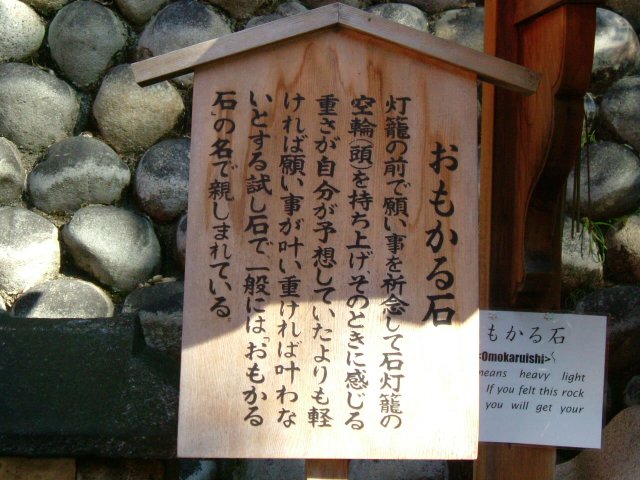 おもかる石
灯籠の前で願い事を祈念して石灯籠の
空輪(頭)を持ち上げ、そのときに感じる
重さが自分が予想していたよりも軽
ければ願い事が叶い、重ければ叶わな
いとする試し石で、一般には「おもかる
石」の名で親しまれている。
もかる石
<Omokaruishi>
means heavy light
If you felt this rock
you will get your